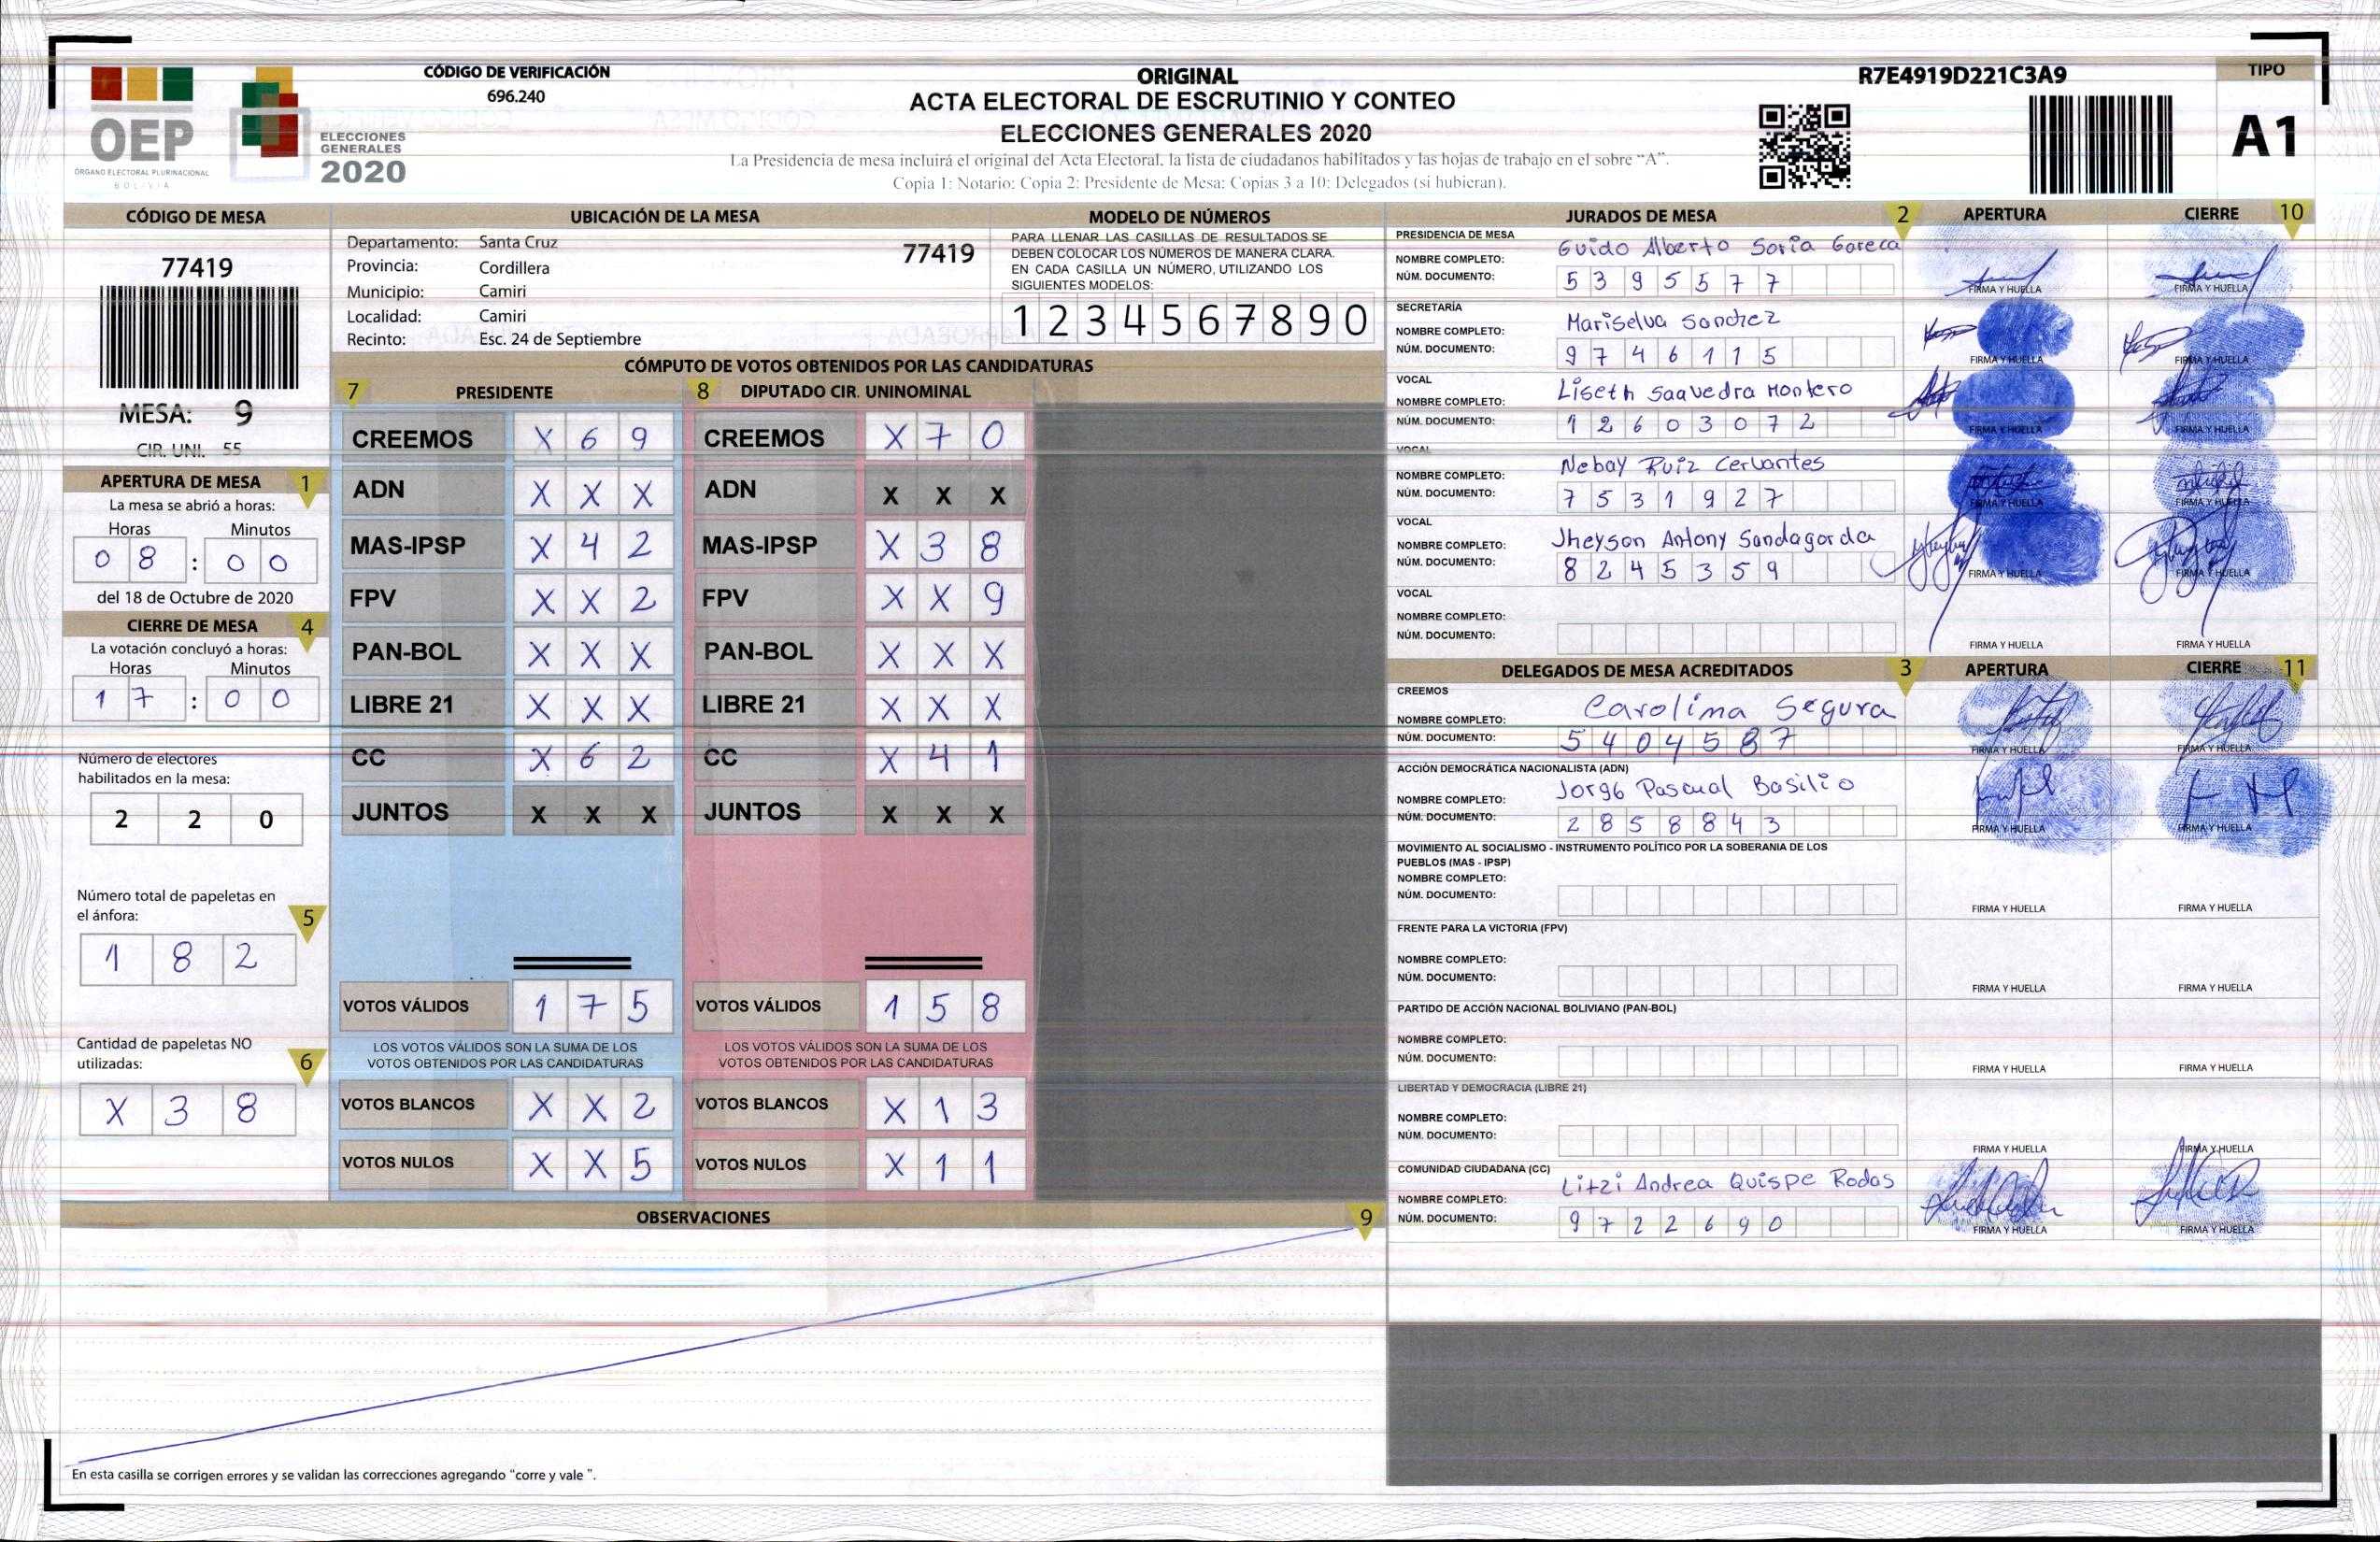 OEP
ÓRGANO ELECTORAL PLURINACIONAL
BOLIVIA
ELECCIONES
GENERALES
2020
CÓDIGO DE VERIFICACIÓN
696.240
ORIGINAL
ACTA ELECTORAL DE ESCRUTINIO Y CONTEO
ELECCIONES GENERALES 2020
La Presidencia de mesa incluirá el original del Acta Electoral, la lista de ciudadanos habilitados y las hojas de trabajo en el sobre “A”.
Copia 1: Notario; Copia 2: Presidente de Mesa; Copias 3 a 10: Delegados (si hubieran).
R7E4919D221C3A9
TIPO
A1
CÓDIGO DE MESA
77419
MESA: 9
CIR. UNI. 55
APERTURA DE MESA 1
La mesa se abrió a horas:
Horas Minutos
0 8 : 0 0
del 18 de Octubre de 2020
CIERRE DE MESA 4
La votación concluyó a horas:
Horas Minutos
1 7 : 0 0
Número de electores
habilitados en la mesa:
2 2 0
Número total de papeletas en
el ánfora: 5
1 8 2
Cantidad de papeletas NO
utilizadas: 6
X 3 8
UBICACIÓN DE LA MESA
Departamento: Santa Cruz 77419
Provincia: Cordillera
Municipio: Camiri
Localidad: Camiri
Recinto: Esc. 24 de Septiembre
MODELO DE NÚMEROS
PARA LLENAR LAS CASILLAS DE RESULTADOS SE
DEBEN COLOCAR LOS NÚMEROS DE MANERA CLARA.
EN CADA CASILLA UN NÚMERO, UTILIZANDO LOS
SIGUIENTES MODELOS:
1 2 3 4 5 6 7 8 9 0
CÓMPUTO DE VOTOS OBTENIDOS POR LAS CANDIDATURAS
7 PRESIDENTE 8 DIPUTADO CIR. UNINOMINAL
CREEMOS X 6 9 CREEMOS X 7 0
ADN X X X ADN X X X
MAS-IPSP X 4 2 MAS-IPSP X 3 8
FPV X X 2 FPV X X 9
PAN-BOL X X X PAN-BOL X X X
LIBRE 21 X X X LIBRE 21 X X X
CC X 6 2 CC X 4 1
JUNTOS X X X JUNTOS X X X
VOTOS VÁLIDOS 1 7 5 VOTOS VÁLIDOS 1 5 8
LOS VOTOS VÁLIDOS SON LA SUMA DE LOS LOS VOTOS VÁLIDOS SON LA SUMA DE LOS
VOTOS OBTENIDOS POR LAS CANDIDATURAS VOTOS OBTENIDOS POR LAS CANDIDATURAS
VOTOS BLANCOS X X 2 VOTOS BLANCOS X 1 3
VOTOS NULOS X X 5 VOTOS NULOS X 1 1
OBSERVACIONES 9
En esta casilla se corrigen errores y se validan las correcciones agregando “corre y vale ”.
JURADOS DE MESA 2 APERTURA CIERRE 10
PRESIDENCIA DE MESA
NOMBRE COMPLETO: Guido Alberto Soria Gareca
NÚM. DOCUMENTO: 5 3 9 5 5 7 7
FIRMA Y HUELLA FIRMA Y HUELLA
SECRETARÍA
NOMBRE COMPLETO: Mariselva Sanchez
NÚM. DOCUMENTO: 9 7 4 6 1 1 5
FIRMA Y HUELLA FIRMA Y HUELLA
VOCAL
NOMBRE COMPLETO: Liseth Saavedra Montero
NÚM. DOCUMENTO: 1 2 6 0 3 0 7 2
FIRMA Y HUELLA FIRMA Y HUELLA
VOCAL
NOMBRE COMPLETO: Nebay Ruiz Cervantes
NÚM. DOCUMENTO: 7 5 3 1 9 2 7
FIRMA Y HUELLA FIRMA Y HUELLA
VOCAL
NOMBRE COMPLETO: Jheyson Antony Sandagorda
NÚM. DOCUMENTO: 8 2 4 5 3 5 9
FIRMA Y HUELLA FIRMA Y HUELLA
VOCAL
NOMBRE COMPLETO:
NÚM. DOCUMENTO:
FIRMA Y HUELLA FIRMA Y HUELLA
DELEGADOS DE MESA ACREDITADOS 3 APERTURA CIERRE 11
CREEMOS
NOMBRE COMPLETO: Carolima Segura
NÚM. DOCUMENTO: 5 4 0 4 5 8 7
FIRMA Y HUELLA FIRMA Y HUELLA
ACCIÓN DEMOCRÁTICA NACIONALISTA (ADN)
NOMBRE COMPLETO: Jorge Pascual Basilio
NÚM. DOCUMENTO: 2 8 5 8 8 4 3
FIRMA Y HUELLA FIRMA Y HUELLA
MOVIMIENTO AL SOCIALISMO - INSTRUMENTO POLÍTICO POR LA SOBERANIA DE LOS
PUEBLOS (MAS - IPSP)
NOMBRE COMPLETO:
NÚM. DOCUMENTO:
FIRMA Y HUELLA FIRMA Y HUELLA
FRENTE PARA LA VICTORIA (FPV)
NOMBRE COMPLETO:
NÚM. DOCUMENTO:
FIRMA Y HUELLA FIRMA Y HUELLA
PARTIDO DE ACCIÓN NACIONAL BOLIVIANO (PAN-BOL)
NOMBRE COMPLETO:
NÚM. DOCUMENTO:
FIRMA Y HUELLA FIRMA Y HUELLA
LIBERTAD Y DEMOCRACIA (LIBRE 21)
NOMBRE COMPLETO:
NÚM. DOCUMENTO:
FIRMA Y HUELLA FIRMA Y HUELLA
COMUNIDAD CIUDADANA (CC)
NOMBRE COMPLETO: Litzi Andrea Quispe Rodas
NÚM. DOCUMENTO: 9 7 2 2 6 9 0
FIRMA Y HUELLA FIRMA Y HUELLA